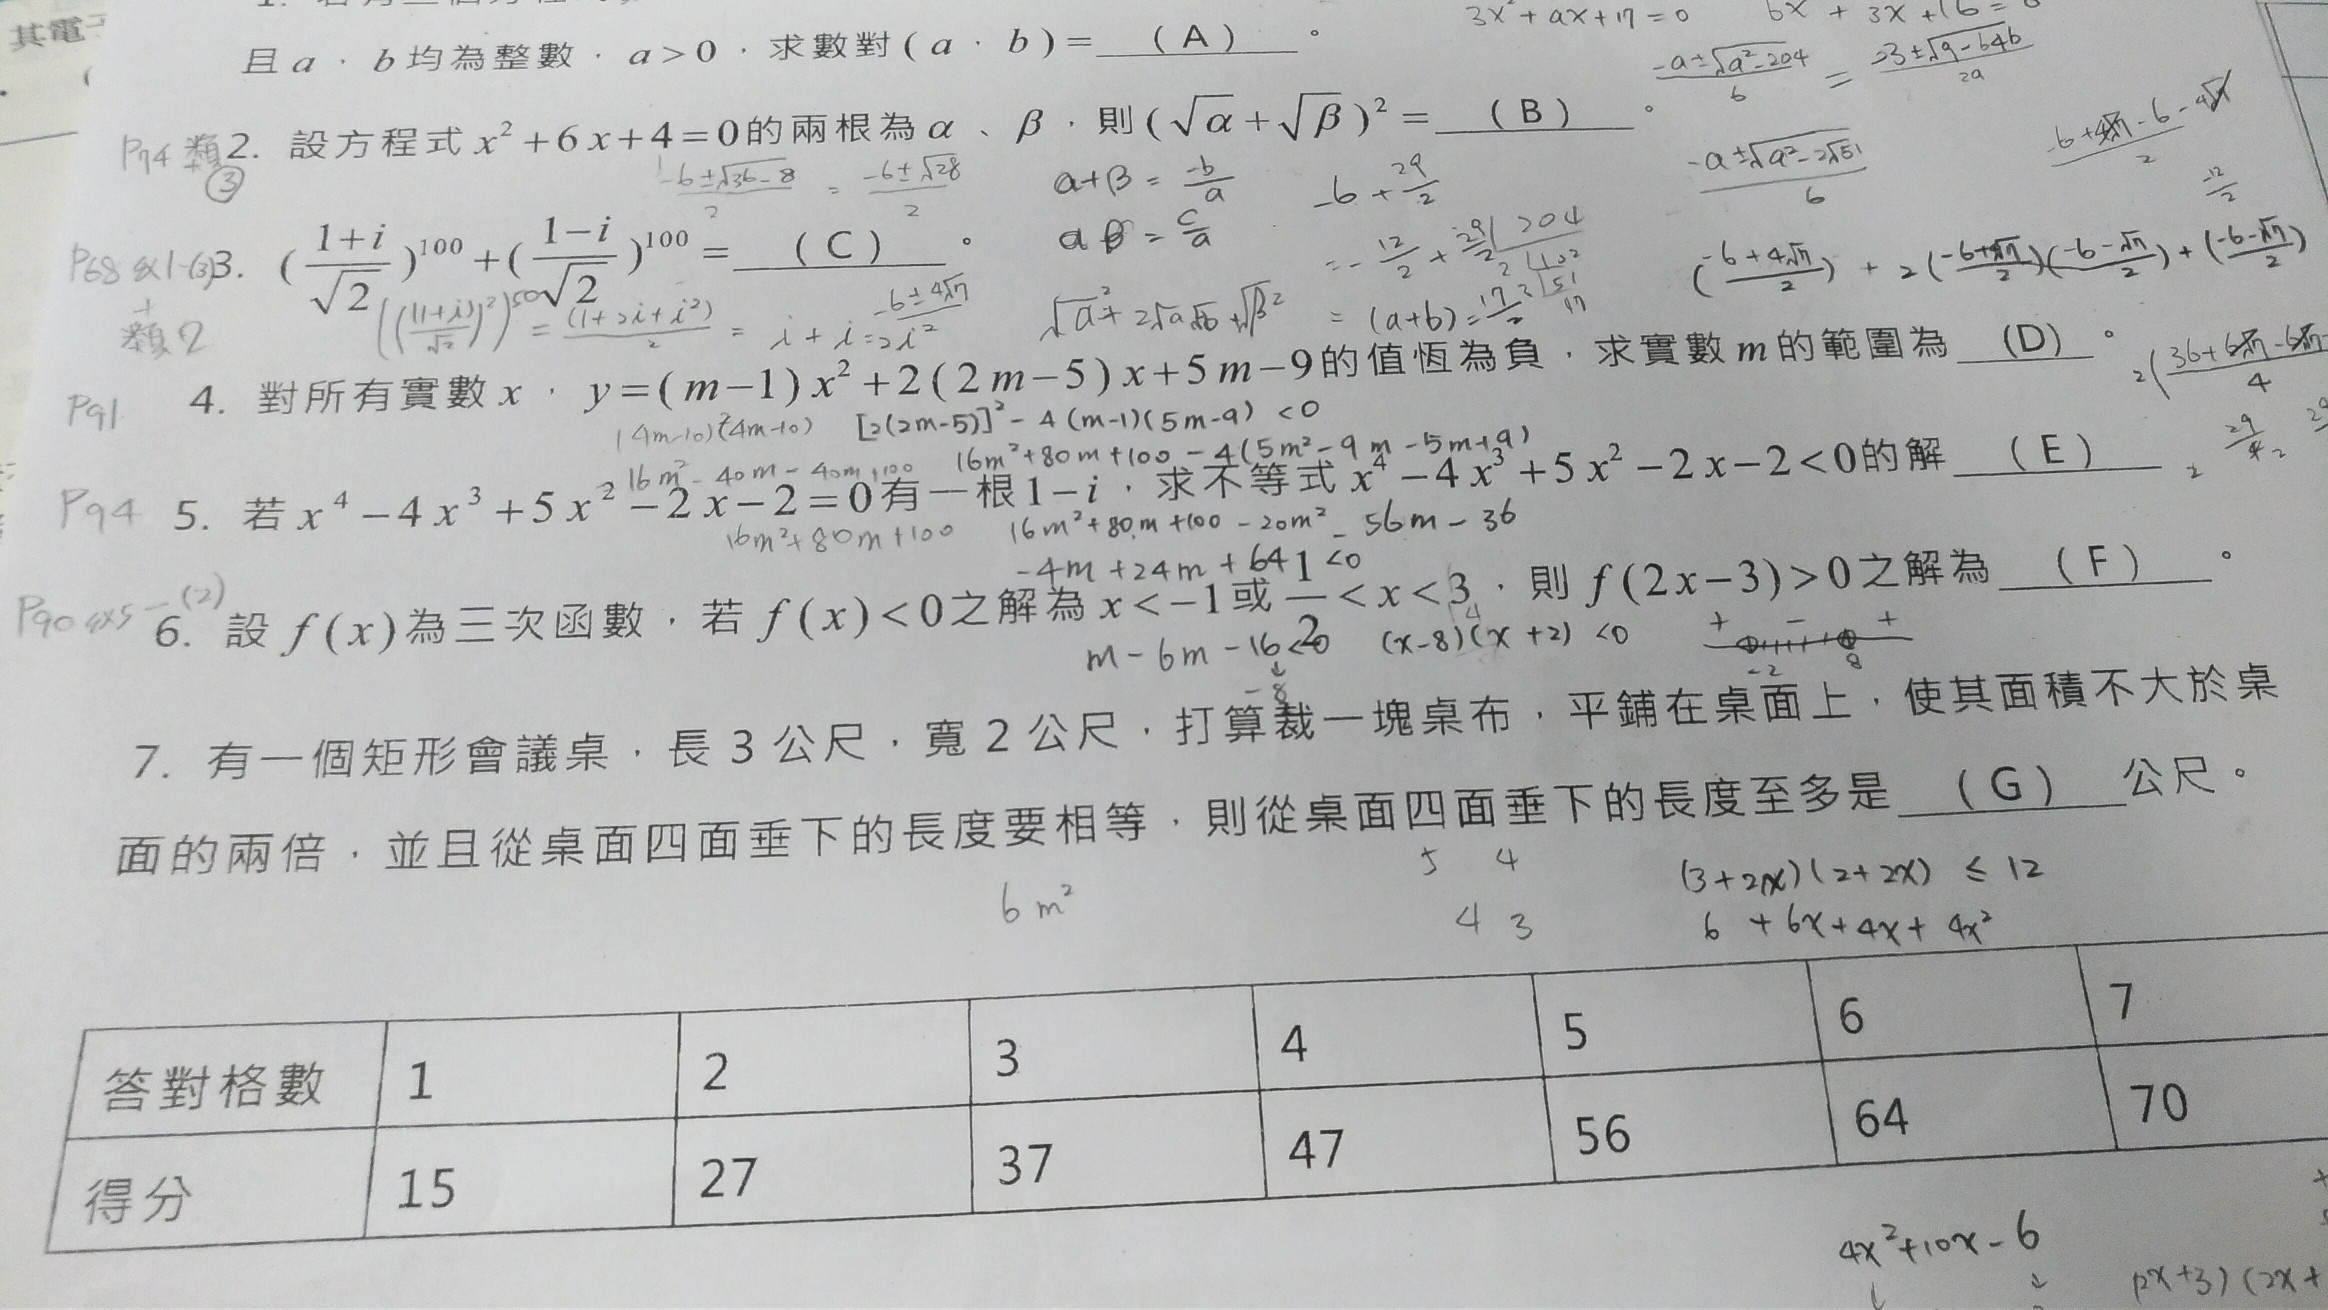 其電
且a,b均為整數,a>0,求數對(a,b)=  (A)  。
3x²+ax+17=0
-a±√a²-204 / 6 = -3±√9-64b / 2a
P74 類 ③
2. 設方程式x²+6x+4=0的兩根為α、β,則(√α+√β)²=  (B)  。
-6±√36-8 / 2 = -6±√28 / 2
α+β = -b/a
αβ = c/a
-6+29/2
-a±√a²-2√51 / 6
P68 ex1-(3)
+
類2
3. ((1+i)/√2)¹⁰⁰+((1-i)/√2)¹⁰⁰=  (C)  。
(((1+i)/√2)²)⁵⁰ = (1+2i+i²)/2 = i+i=2i²
-6±4√7 / 2
= -12/2 + 29/2
= (a+b)=17/2
204
102
51
17
P91
4. 對所有實數x,y=(m-1)x²+2(2m-5)x+5m-9的值恆為負,求實數m的範圍為  (D)  。
(4m-10)(4m-10) [2(2m-5)]²-4(m-1)(5m-9)<0
16m²-40m-40m+100 16m²+80m+100-4(5m²-9m-5m+9)
P94
5. 若x⁴-4x³+5x²-2x-2=0有一根1-i,求不等式x⁴-4x³+5x²-2x-2<0的解  (E)
16m²+80m+100 16m²+80m+100-20m²-56m-36
-4m+24m+64<0
P90 ex5-(2)
6. 設f(x)為三次函數,若f(x)<0之解為x<-1或1/2<x<3,則f(2x-3)>0之解為  (F)  。
m-6m-16<0 (x-8)(x+2)<0
+ - +
-2 8
-8
7. 有一個矩形會議桌,長3公尺,寬2公尺,打算裁一塊桌布,平鋪在桌面上,使其面積不大於桌
面的兩倍,並且從桌面四面垂下的長度要相等,則從桌面四面垂下的長度至多是  (G)  公尺。
5 4
4 3
6m²
(3+2x)(2+2x) ≤ 12
6+6x+4x+4x²
答對格數 1 2 3 4 5 6 7
得分 15 27 37 47 56 64 70
4x²+10x-6
(2x+3)(2x+